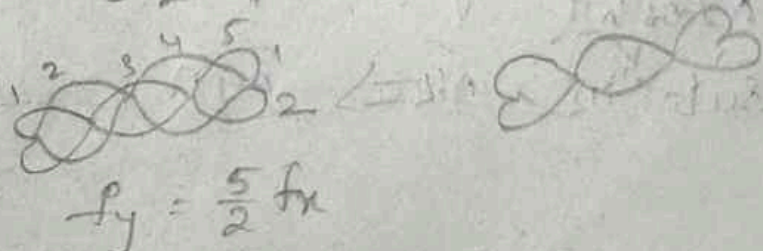 1 2 3 4 5 1
2
fy = 5/2 fx